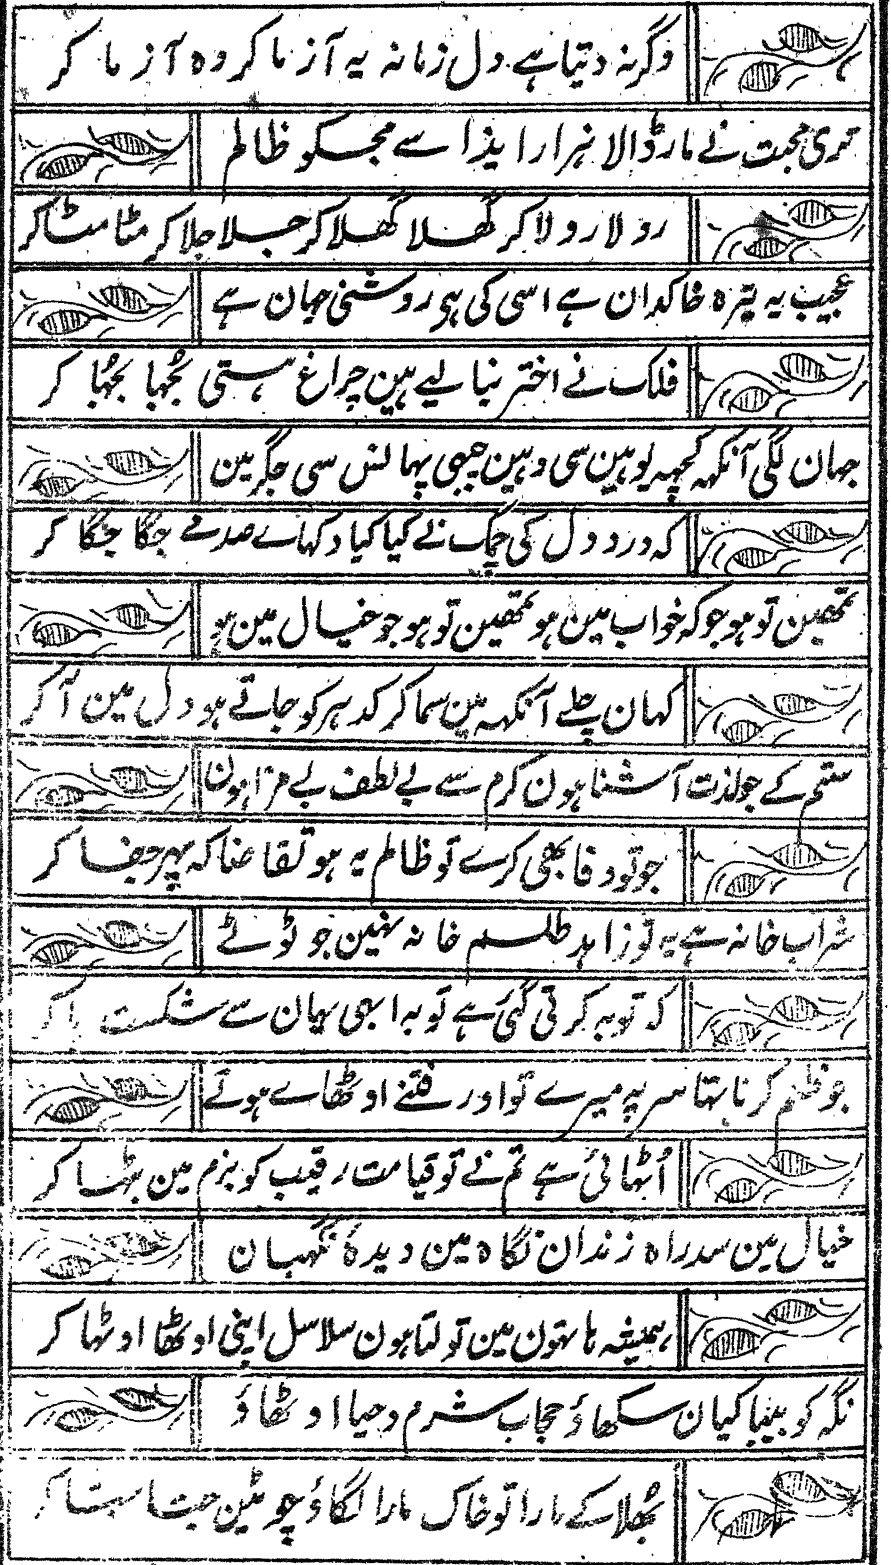 وگرنہ دنیا ہے دل زمانہ یہ آزما کر وہ آزما کر
تری محبت نے مار ڈالا ہزار ایذا سے مجکو ظالم
رولا رولا کر گھلا گھلا کر جلا جلا کر مٹا مٹا کر
عجیب یہ تیرہ خاکدان ہے اسی کی ہی روشنی جہان ہے
فلک نے اختر بنا لیے ہین چراغ ہستی بجھا بجھا کر
جہان لگی آنکہہ کچہہ یوہین سی وہین چبھی پہانس سی جگر مین
کہ درد دل کی چمک نے کیا کیا دکہاے صدمے جگا جگا کر
تمھین تو ہو جو کہ خواب مین ہو تمھین تو ہو جو خیال مین ہو
کہان چلے آنکہہ مین سما کر کدہر کو جاتے ہو دل مین آ کر
ستم کے جو لذت آشنا ہون کرم سے بے لطف بے مزا ہون
جو تو وفا بھی کرے تو ظالم یہ ہو تقاضا کہ پہر جفا کر
شراب خانہ ہے یہ تو زاہد طلسم خانہ نہین جو ٹوٹے
کہ توبہ کر تی گئی ہے توبہ ابھی یہان سے شکست پا کر
جو ظلم کرنا تہا سر پہ میرے تو اور فتنے اوٹھاے ہوتے
اُٹہائی ہے تم نے تو قیامت رقیب کو بزم مین بٹہا کر
خیال مین سدراہ زندان نگاہ مین دیدۂ نگہبان
ہمیشہ ہاتہون مین تولتا ہون سلاسل اپنی اوٹھا اوٹہا کر
نگہ کو بیباکیان سکھاؤ حجاب شرم و حیا اوٹھاؤ
بُھلا کے مارا تو خاک مارا لگاؤ چوٹین جتا جتا کر